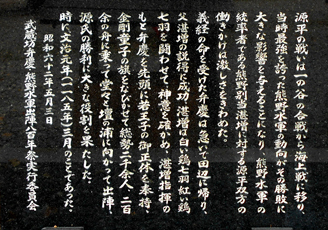 源平の戦いは一の谷の合戦から海上戦に移り、
当時最強を誇った熊野水軍の動向がその勝敗に
大きな影響を与えることになり、熊野水軍の
統率者である熊野別当湛増に対する源平双方の
働きかけは激しさをきわめた。
義経の命を受けた弁慶は急いで田辺に帰り、
父湛増の説得に成功、湛増は白い鶏七羽紅い鶏
七羽を闘わせて、神意を確かめ、湛増指揮の
もと弁慶を先頭に若王子の御正体を奉持、
金剛童子の旗をなびかせて総勢二千余人・二百
余の舟に乗って堂々と壇の浦に向かって出陣、
源氏の勝利に大きく役割を果たした。
時、文治元年(一一八五年)三月のことであった。
昭和六十二年五月三日
武蔵坊弁慶・熊野水軍出陣八百年祭実行委員会